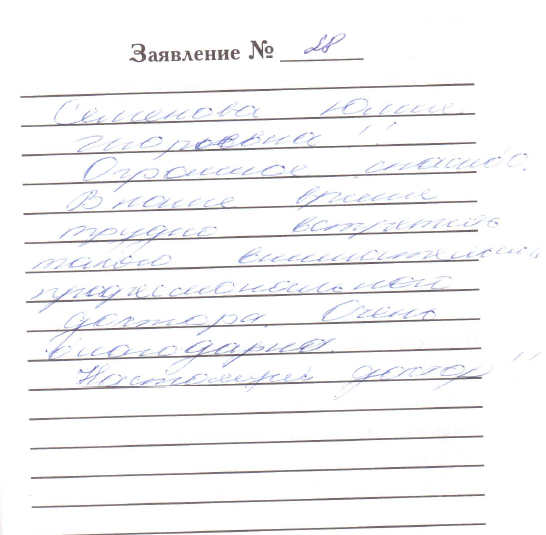 Заявление № 28
Семенова Юлия
Игоревна !!
Огромное спасибо.
В наше время
трудно встретить
такого внимательного,
профессионального
доктора. Очень
благодарна.
Настоящий доктор !!